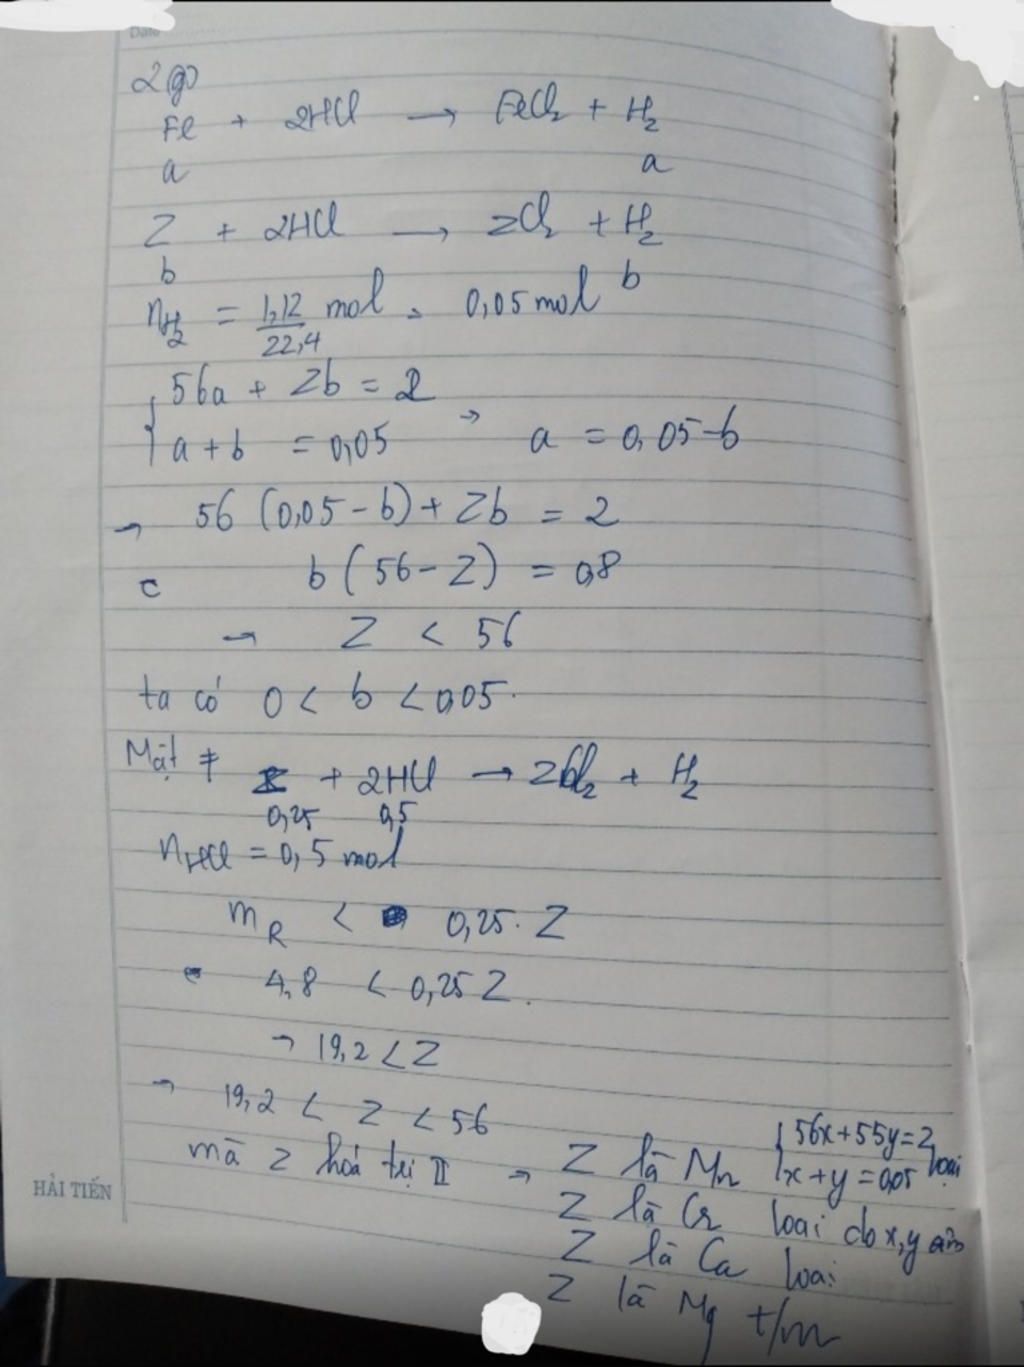 Date
2(g)
Fe + 2HCl → FeCl2 + H2
a a
Z + 2HCl → ZCl2 + H2
b b
nH2 = 1,12/22,4 mol = 0,05 mol
{ 56a + Zb = 2
{ a + b = 0,05 → a = 0,05-b
→ 56 (0,05 - b) + Zb = 2
c b (56 - Z) = 0,8
→ Z < 56
ta có 0 < b < 0,05.
Mặt ≠ Z + 2HCl → ZCl2 + H2
0,25 0,5
nHCl = 0,5 mol
mR < 0,25. Z
4,8 < 0,25 Z.
→ 19,2 < Z
→ 19,2 < Z < 56
mà Z hoá trị II → Z là Mn { 56x + 55y = 2 { x + y = 0,05 loại
Z là Cr loại do x,y âm
Z là Ca loại
Z là Mg t/m
HẢI TIẾN